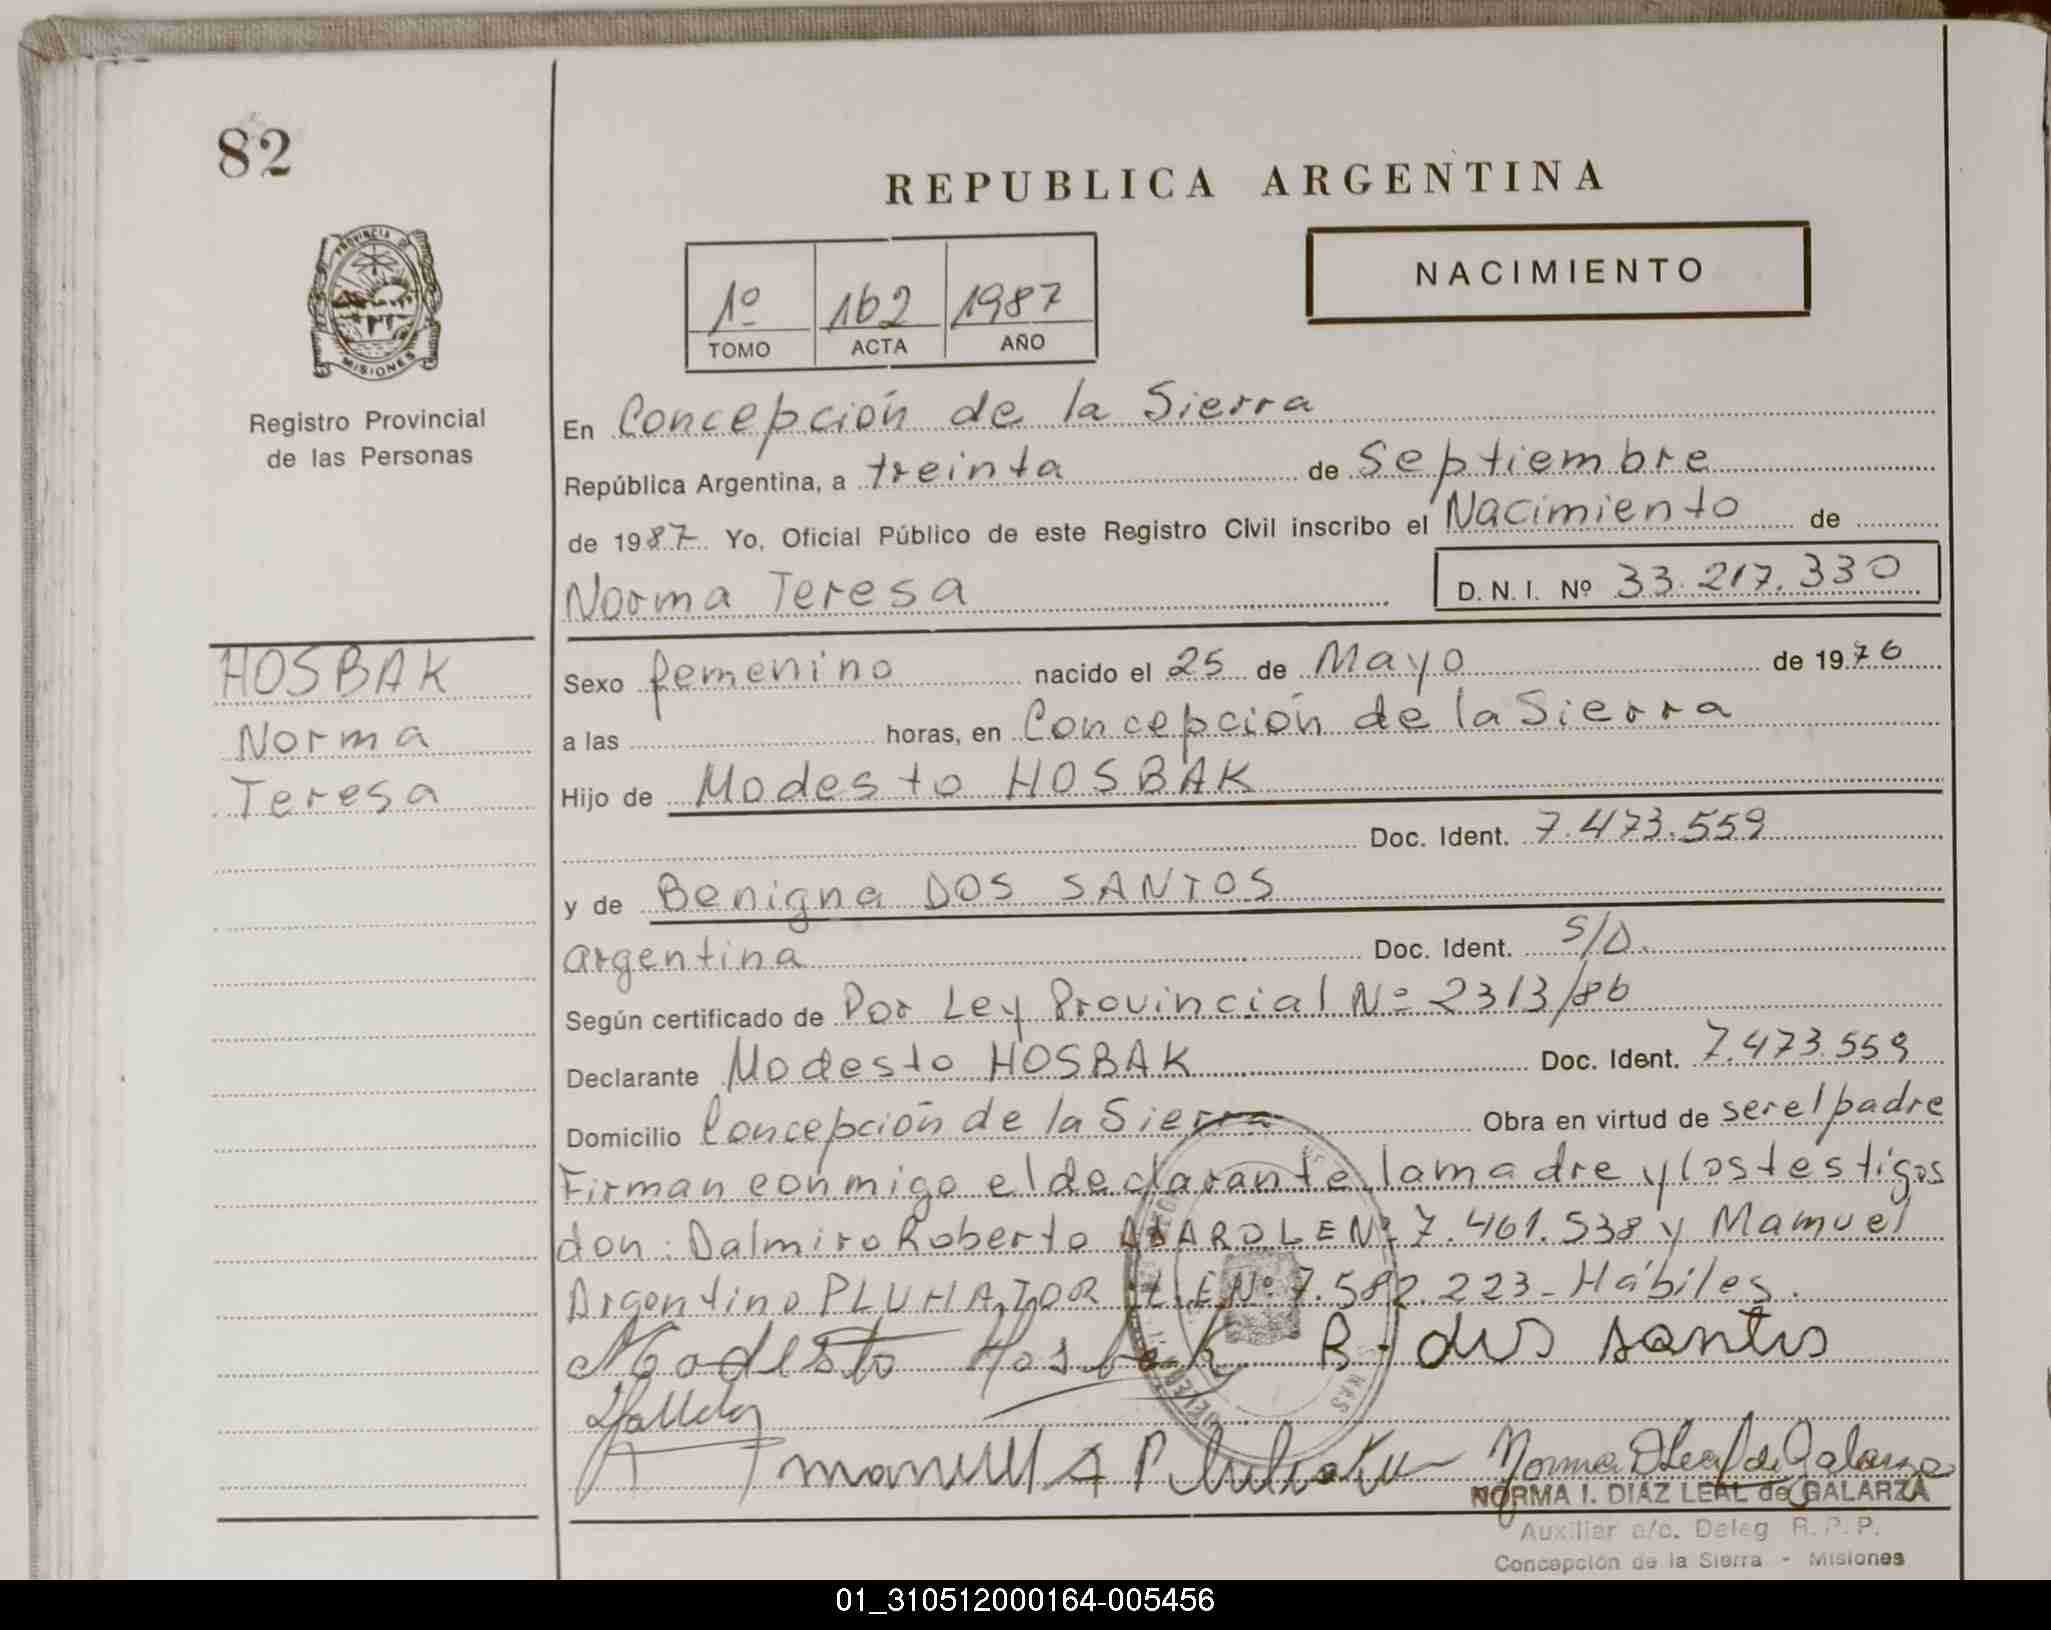 82
REPUBLICA ARGENTINA
NACIMIENTO
1º 162 1987
TOMO ACTA AÑO
PROVINCIA DE
MISIONES
Registro Provincial
de las Personas
En Concepción de la Sierra
República Argentina, a treinta de Septiembre
de 1987 Yo, Oficial Público de este Registro Civil inscribo el Nacimiento de
Norma Teresa D.N.I. Nº 33.217.330
HOSBAK
Norma
Teresa
Sexo femenino nacido el 25 de Mayo de 1976
a las horas, en Concepción de la Sierra
Hijo de Modesto HOSBAK
Doc. Ident. 7.473.559
y de Benigna DOS SANTOS
argentina Doc. Ident. S/D.
Según certificado de Por Ley Provincial Nº 2313/86
Declarante Modesto HOSBAK Doc. Ident. 7.473.559
Domicilio Concepción de la Sierra Obra en virtud de ser el padre
Firman conmigo el declarante, la madre y los testigos
don: Dalmiro Roberto L E Nº 7.461.538 y Manuel
Argentino L.E Nº 7.582.223- Hábiles.
Modesto Hosbak B. dos santos
manuel A
Norma D Leal de Galarza
NORMA I. DIAZ LEAL de GALARZA
Auxiliar a/c. Deleg R.P.P.
Concepción de la Sierra - Misiones
01_310512000164-005456